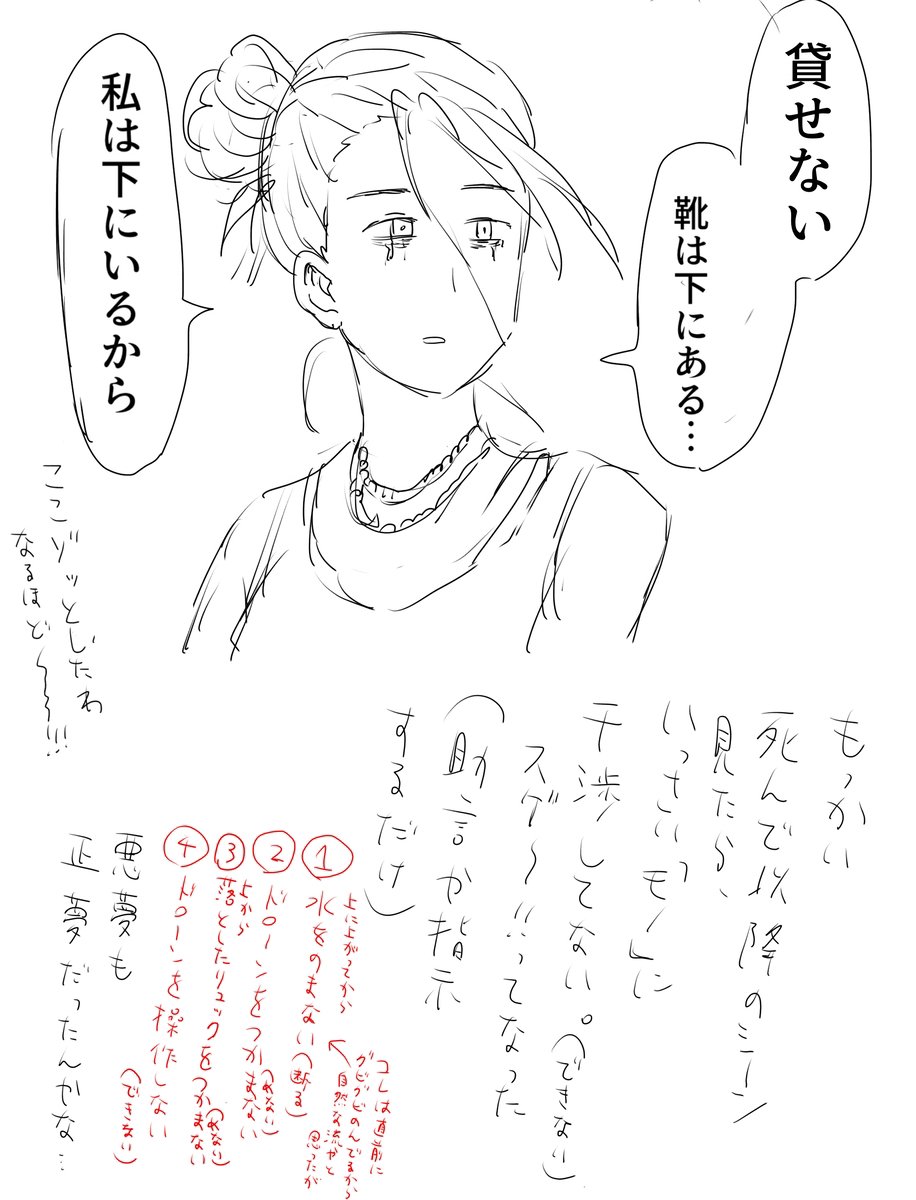 貸せない
靴は下にある…
私は下にいるから
ここゾッとしたわ
なるほど〜〜!!!
もっかい
死んで以降のシーン
見たら、
いっさい「モノ」に
干渉してない。(できない)
スゲ〜!!ってなった
(助言か指示
するだけ)
上に上がってから
① 水をのまない(断る)
コレは直前に
グビグビのんでるから
自然な流れかと
思ったが
② ドローンをつかまない(めない)
上から
③ 落としたリュックをつかまない(めない)
④ ドローンを操作しない(できない)
悪夢も
正夢だったんかな…